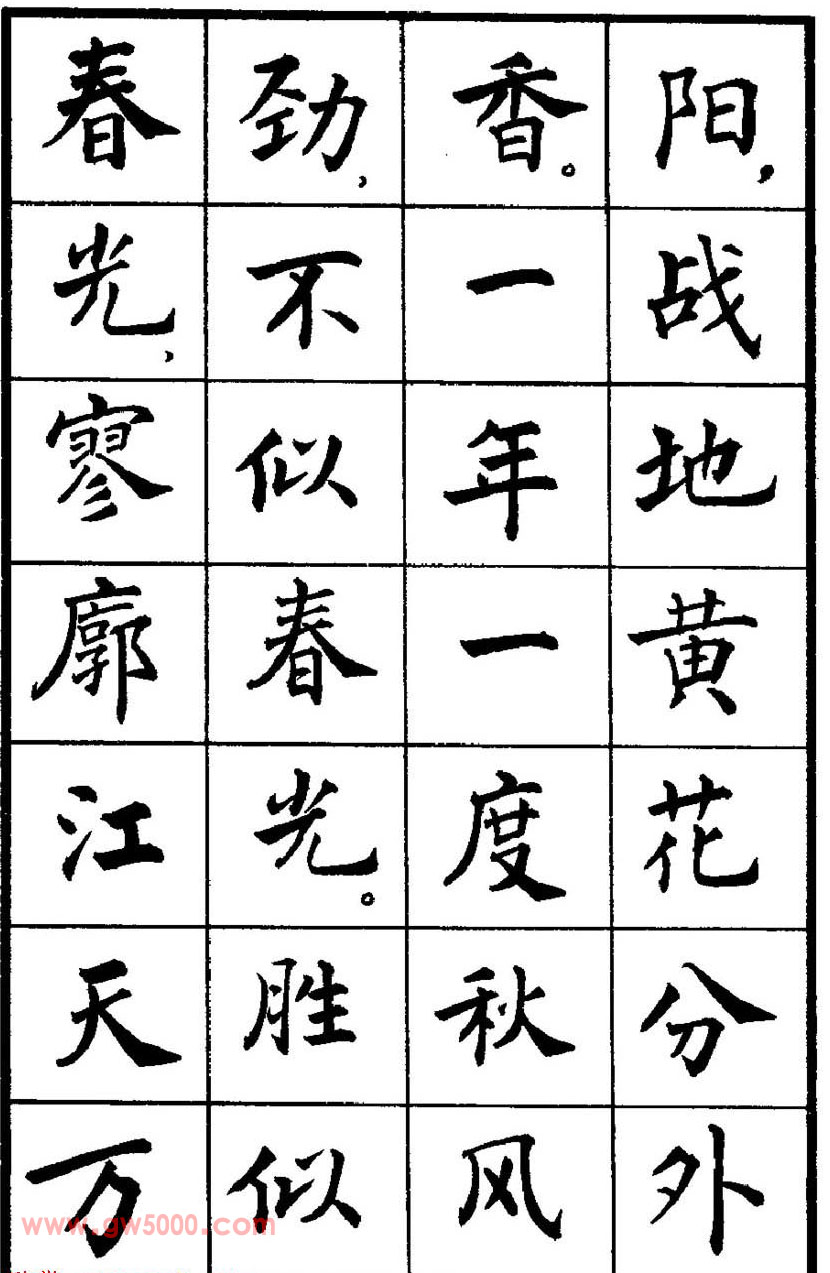 阳，战地黄花分外
香。一年一度秋风
劲，不似春光。胜似
春光，寥廓江天万
www.gw5000.com